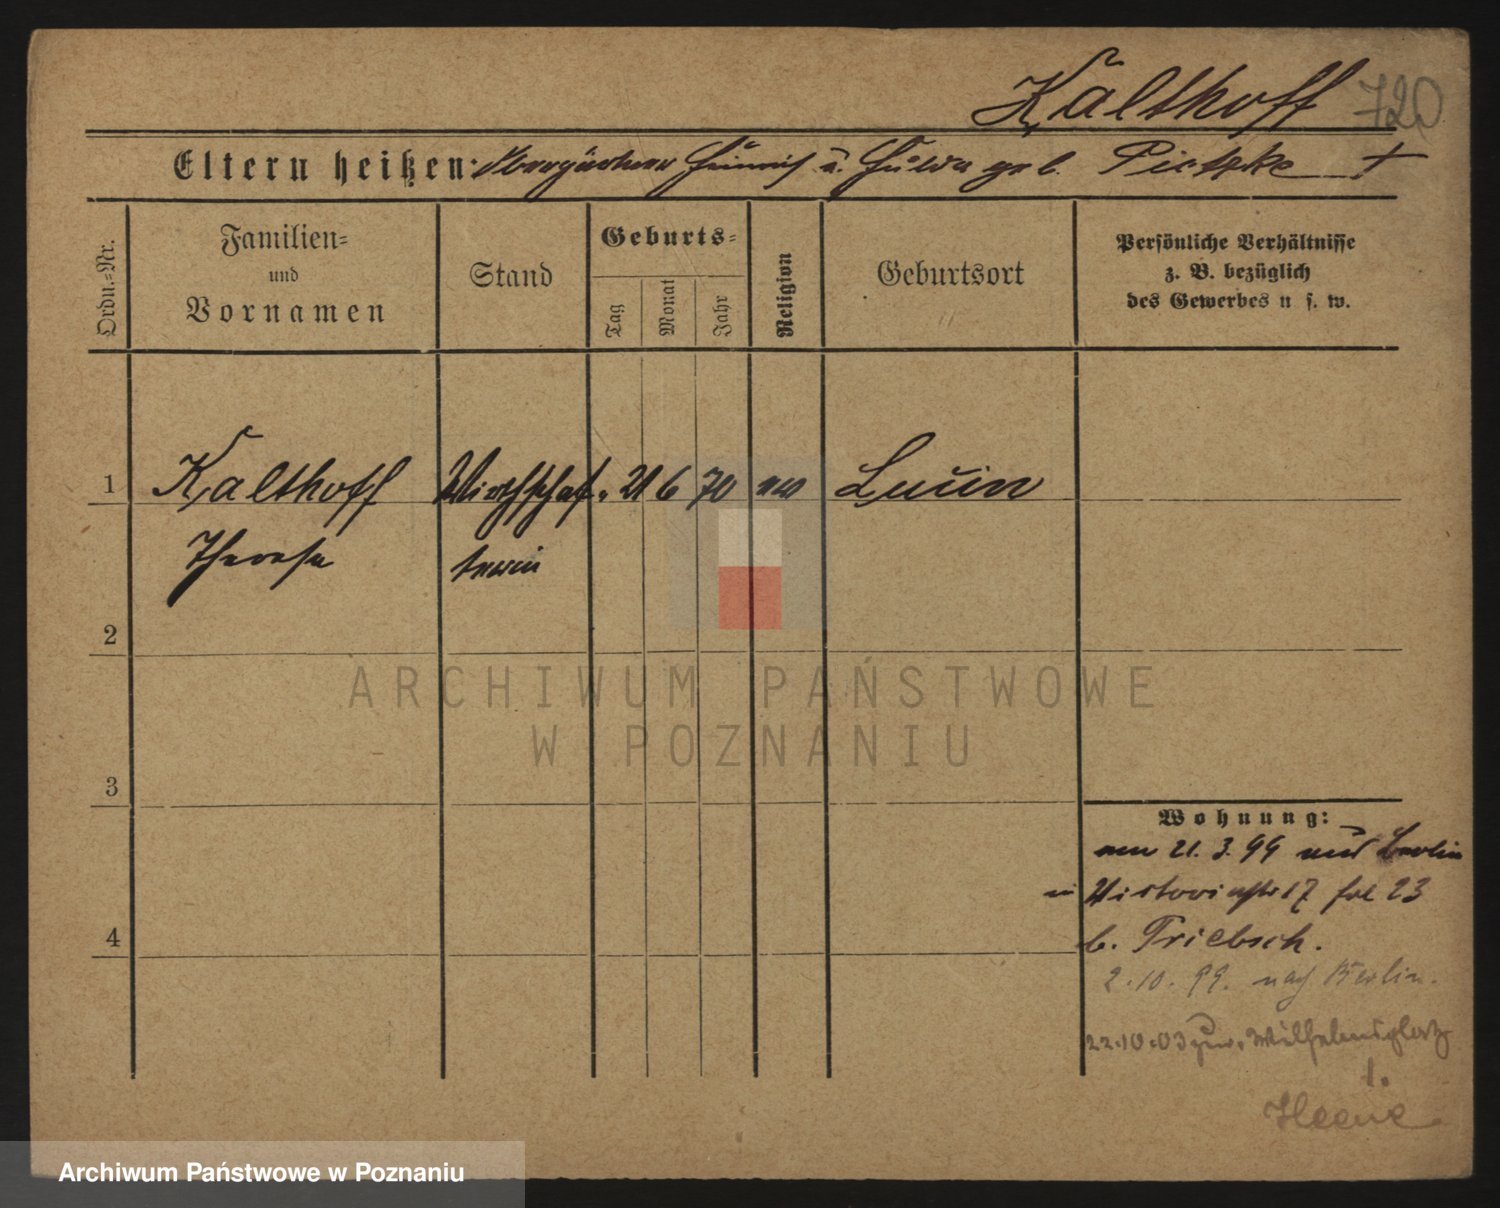 Kalthoff 720
Eltern heißen: Obergärtner Heinrich u. Hulda geb. Pietzke †
Ordn.-Nr.
Familien-
und
Vornamen
Stand
Geburts-
Tag
Monat
Jahr
Religion
Geburtsort
Persönliche Verhältnisse
z. B. bezüglich
des Gewerbes u s. w.
1 Kalthoff Wirthschaf- 21 6 70 ev
Therese terin
2
3
4
Wohnung:
21. 3. 99 aus Berlin
Victoriastr 17
b. Triebsch.
2.10.99. nach Berlin.
22.10.03 Wilhelmsplatz
1.
ARCHIWUM PAŃSTWOWE
W POZNANIU
Archiwum Państwowe w Poznaniu